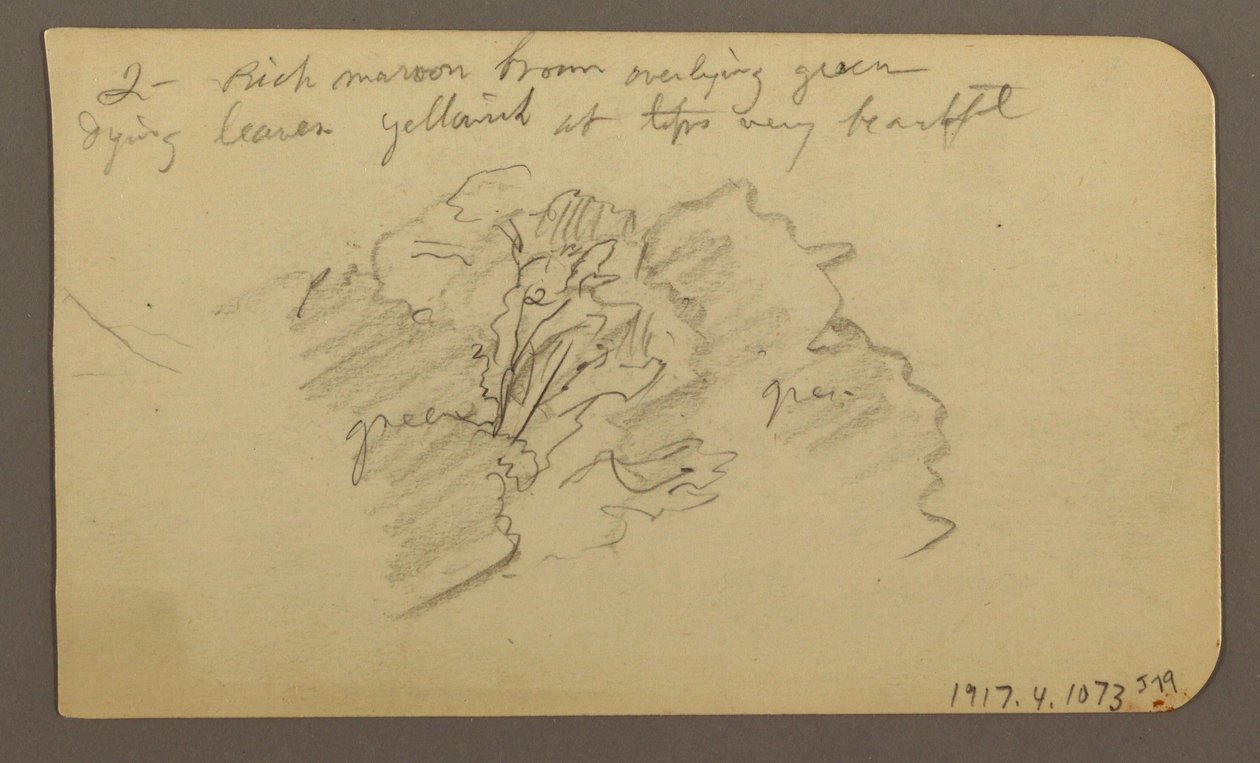 2 - Rich maroon brown overlying green
dying leaves yellowish at tips very beautiful
green
green
1917.4.1073 J79